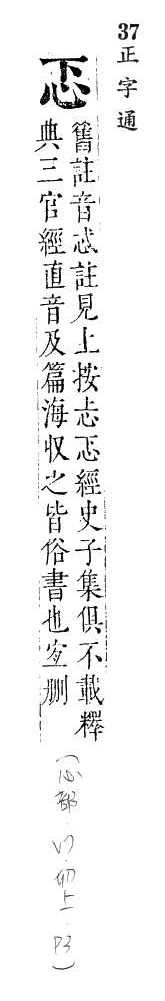 37
正字通
忑
舊註音忒註見上按忐忑經史子集俱不載釋
典三官經直音及篇海収之皆俗書也宜刪
(心部 上 P3)